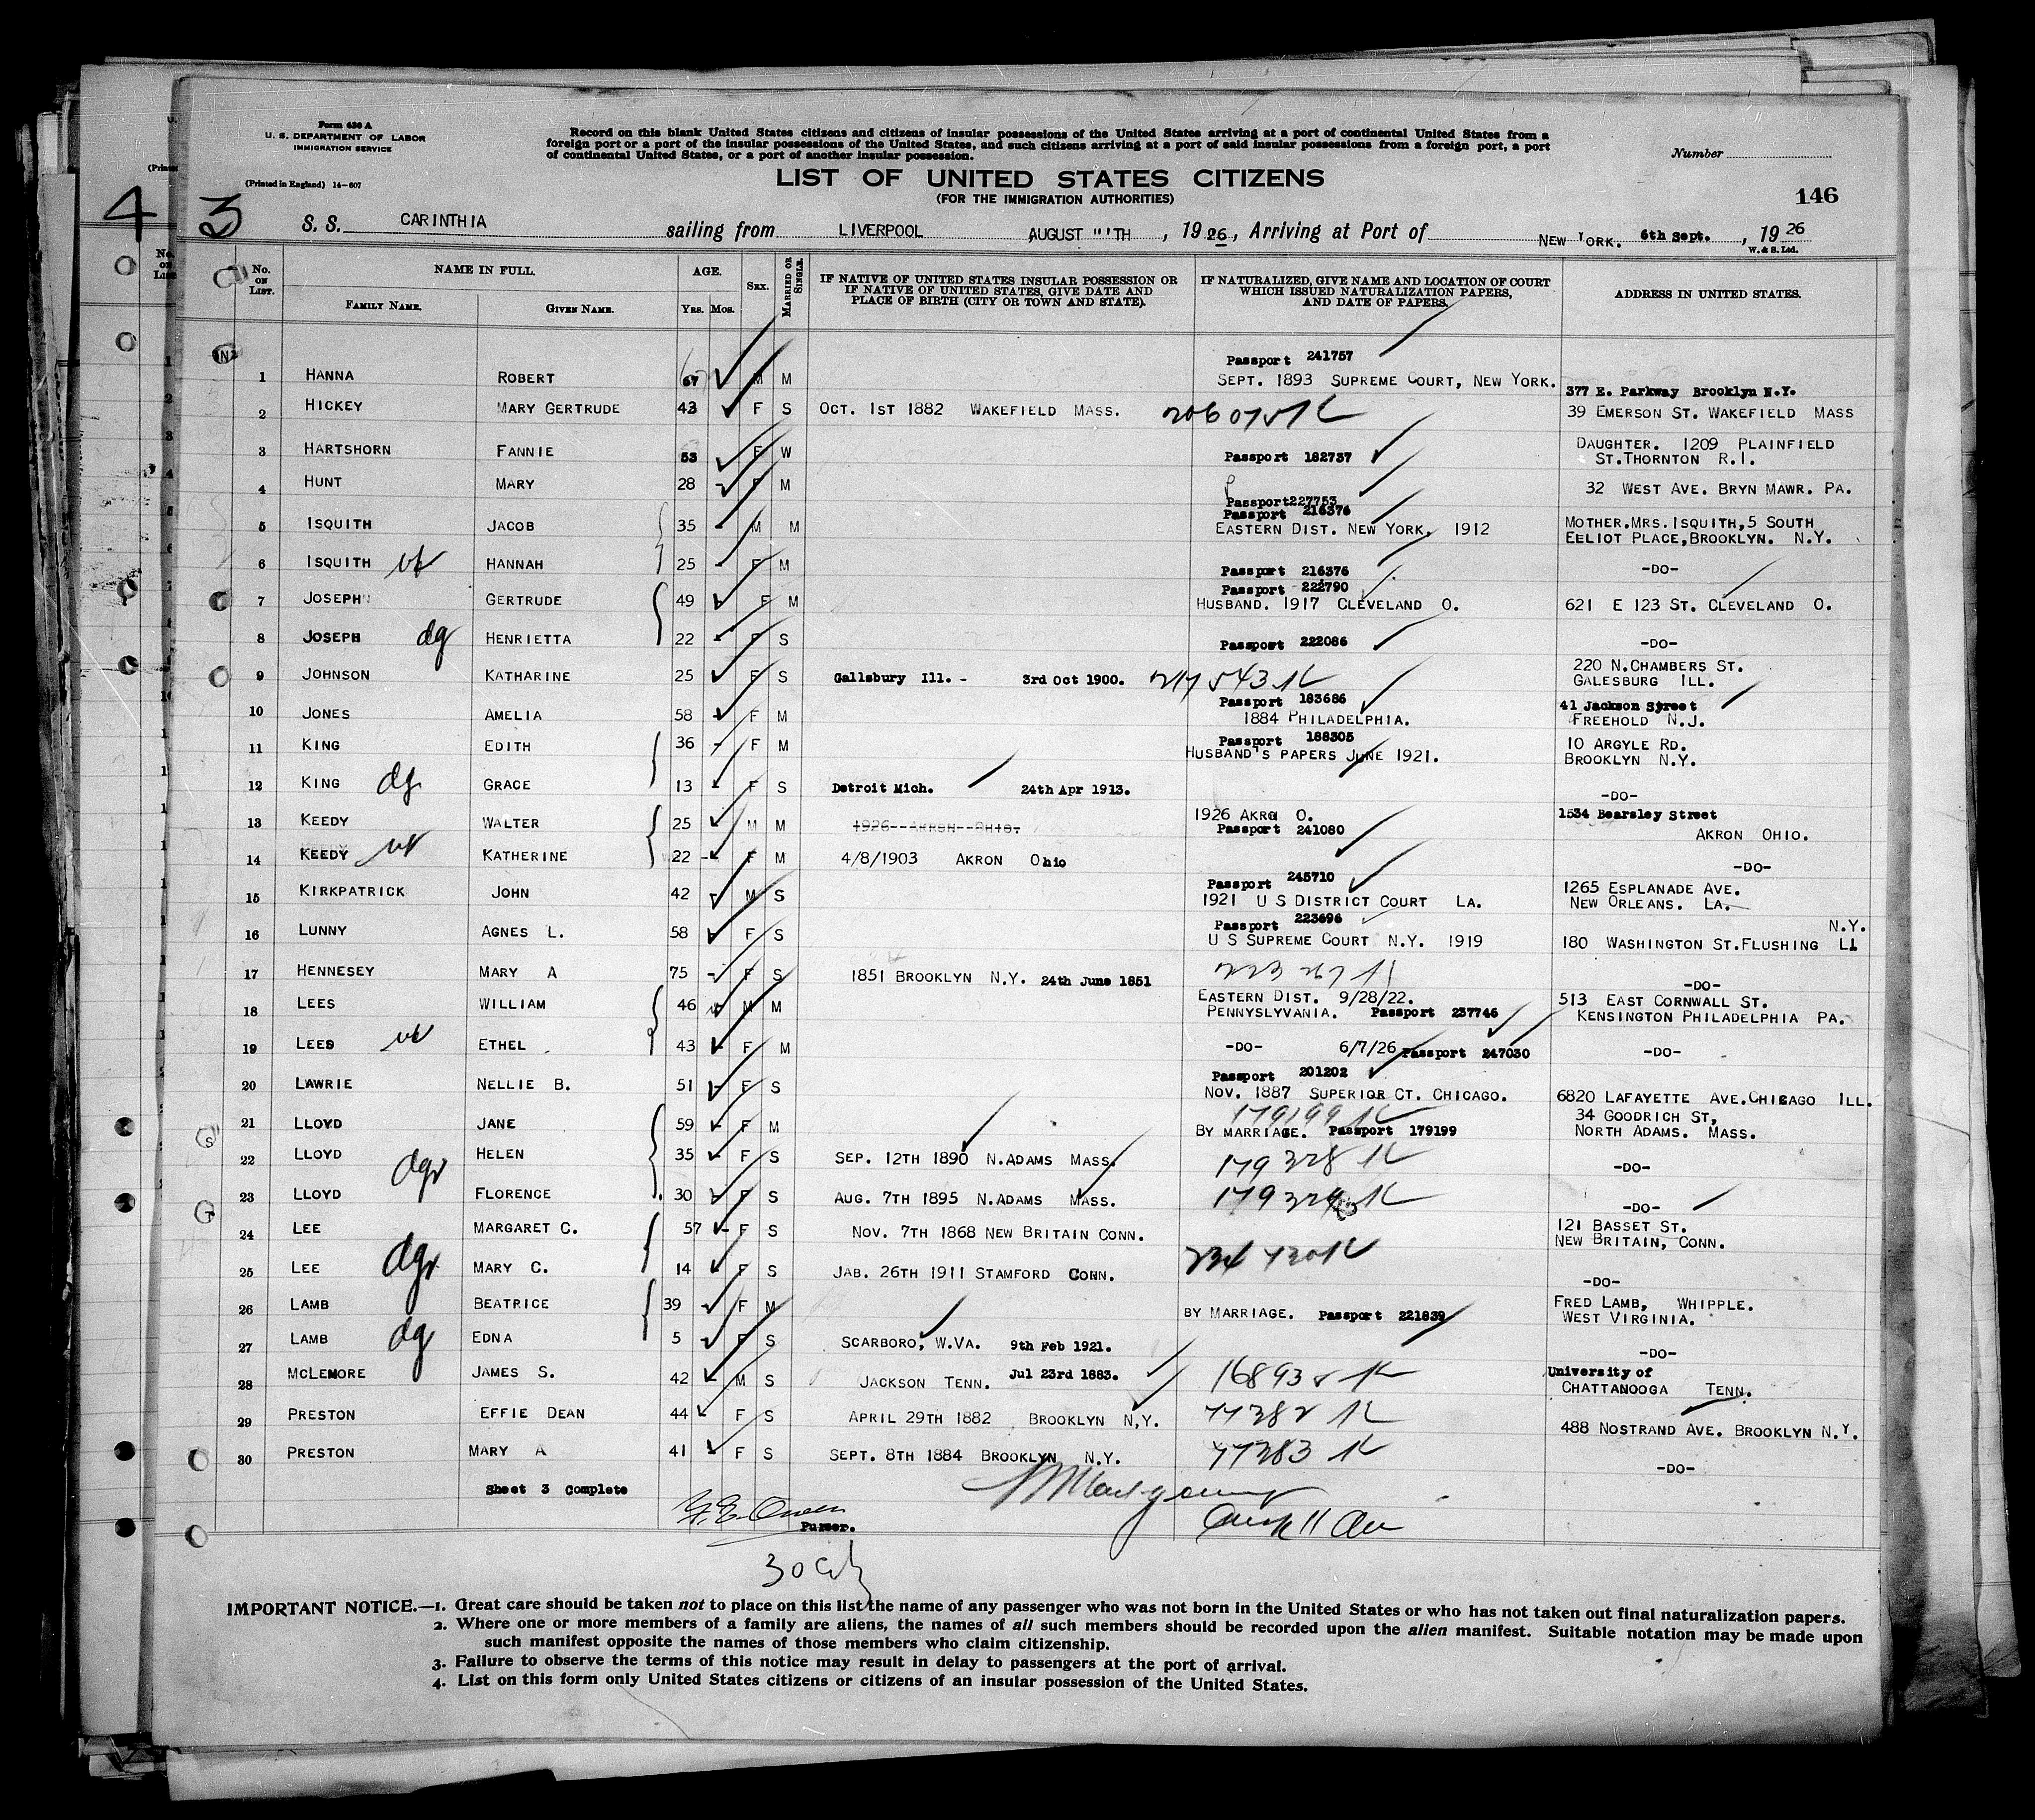 Form 630 A
U. S. DEPARTMENT OF LABOR
IMMIGRATION SERVICE
(Printed in England) 14-607
Record on this blank United States citizens and citizens of insular possessions of the United States arriving at a port of continental United States from a
foreign port or a port of the insular possessions of the United States, and such citizens arriving at a port of said insular possessions from a foreign port, a port
of continental United States, or a port of another insular possession.
Number
LIST OF UNITED STATES CITIZENS
(FOR THE IMMIGRATION AUTHORITIES)
146
4 3
S. S. CARINTHIA sailing from LIVERPOOL AUGUST "ITH, 1926, Arriving at Port of NEW YORK. 6th Sept., 1926
W. & S. Ltd.
No. ON LIST. NAME IN FULL. FAMILY NAME. GIVEN NAME. AGE. YRS. MOS. SEX. MARRIED OR SINGLE.
IF NATIVE OF UNITED STATES INSULAR POSSESSION OR
IF NATIVE OF UNITED STATES, GIVE DATE AND
PLACE OF BIRTH (CITY OR TOWN AND STATE).
IF NATURALIZED, GIVE NAME AND LOCATION OF COURT
WHICH ISSUED NATURALIZATION PAPERS,
AND DATE OF PAPERS.
ADDRESS IN UNITED STATES.
Passport 241757
1 HANNA ROBERT 67 M M SEPT. 1893 SUPREME COURT, NEW YORK. 377 E. Parkway Brooklyn N.Y.
2 HICKEY MARY GERTRUDE 43 F S OCT. 1ST 1882 WAKEFIELD MASS. 39 EMERSON ST. WAKEFIELD MASS
3 HARTSHORN FANNIE 53 F W Passport 182737 DAUGHTER. 1209 PLAINFIELD
ST.THORNTON R.I.
4 HUNT MARY 28 F M Passport227753 32 WEST AVE. BRYN MAWR. PA.
Passport 216376
5 ISQUITH JACOB 35 M M EASTERN DIST. NEW YORK, 1912 MOTHER.MRS.ISQUITH,5 SOUTH
EELIOT PLACE,BROOKLYN. N.Y.
6 ISQUITH HANNAH 25 F M Passport 216376 -DO-
Passport 222790
7 JOSEPH GERTRUDE 49 F M HUSBAND. 1917 CLEVELAND O. 621 E 123 ST. CLEVELAND O.
8 JOSEPH dg HENRIETTA 22 F S Passport 222086 -DO-
9 JOHNSON KATHARINE 25 F S Gallsbury Ill. - 3rd Oct 1900. 217543 220 N.CHAMBERS ST.
GALESBURG ILL.
Passport 183686
10 JONES AMELIA 58 F M 1884 PHILADELPHIA. 41 Jackson Street
FREEHOLD N.J.
Passport 188305
11 KING EDITH 36 F M HUSBAND'S PAPERS JUNE 1921. 10 ARGYLE RD.
BROOKLYN N.Y.
12 KING dg GRACE 13 F S Detroit Mich. 24th Apr 1913. -DO-
13 KEEDY WALTER 25 M M 1926--AKRON--OHIO. 1926 AKRO O.
Passport 241080
1534 Bearsley Street
AKRON OHIO.
14 KEEDY KATHERINE 22 F M 4/8/1903 AKRON Ohio -DO-
Passport 245710
15 KIRKPATRICK JOHN 42 M S 1921 U S DISTRICT COURT LA. 1265 ESPLANADE AVE.
NEW ORLEANS. LA.
Passport 223696
16 LUNNY AGNES L. 58 F S U S SUPREME COURT N.Y. 1919 N.Y.
180 WASHINGTON ST.FLUSHING LI
17 HENNESEY MARY A 75 F S 1851 BROOKLYN N.Y. 24th June 1851 -DO-
18 LEES WILLIAM 46 M M EASTERN DIST. 9/28/22.
PENNYSLYVANIA. Passport 237746
513 EAST CORNWALL ST.
KENSINGTON PHILADELPHIA PA.
19 LEES ETHEL 43 F M -DO- 6/7/26 Passport 247030 -DO-
Passport 201202
20 LAWRIE NELLIE B. 51 F S NOV. 1887 SUPERIOR CT. CHICAGO. 6820 LAFAYETTE AVE.CHICAGO ILL.
179199
21 LLOYD JANE 59 F M BY MARRIAGE. Passport 179199 34 GOODRICH ST,
NORTH ADAMS. MASS.
22 LLOYD HELEN 35 F S SEP. 12TH 1890 N.ADAMS MASS. 179328 -DO-
23 LLOYD FLORENCE 30 F S AUG. 7TH 1895 N.ADAMS MASS. 179329 -DO-
24 LEE MARGARET C. 57 F S NOV. 7TH 1868 NEW BRITAIN CONN. 121 BASSET ST.
NEW BRITAIN, CONN.
25 LEE MARY C. 14 F S JAB. 26TH 1911 STAMFORD CONN. -DO-
26 LAMB BEATRICE 39 F M BY MARRIAGE. Passport 221839 FRED LAMB, WHIPPLE.
WEST VIRGINIA.
27 LAMB dg EDNA 5 F S SCARBORO, W.VA. 9th Feb 1921. -DO-
28 MCLEMORE JAMES S. 42 M S JACKSON TENN. Jul 23rd 1883. University of
CHATTANOOGA TENN.
29 PRESTON EFFIE DEAN 44 F S APRIL 29TH 1882 BROOKLYN N,Y. 77382 488 NOSTRAND AVE. BROOKLYN N.Y.
30 PRESTON MARY A 41 F S SEPT. 8TH 1884 BROOKLYN N.Y. 77383 -DO-
Sheet 3 Complete
Purser.
30
IMPORTANT NOTICE.—1. Great care should be taken not to place on this list the name of any passenger who was not born in the United States or who has not taken out final naturalization papers.
2. Where one or more members of a family are aliens, the names of all such members should be recorded upon the alien manifest. Suitable notation may be made upon
such manifest opposite the names of those members who claim citizenship.
3. Failure to observe the terms of this notice may result in delay to passengers at the port of arrival.
4. List on this form only United States citizens or citizens of an insular possession of the United States.